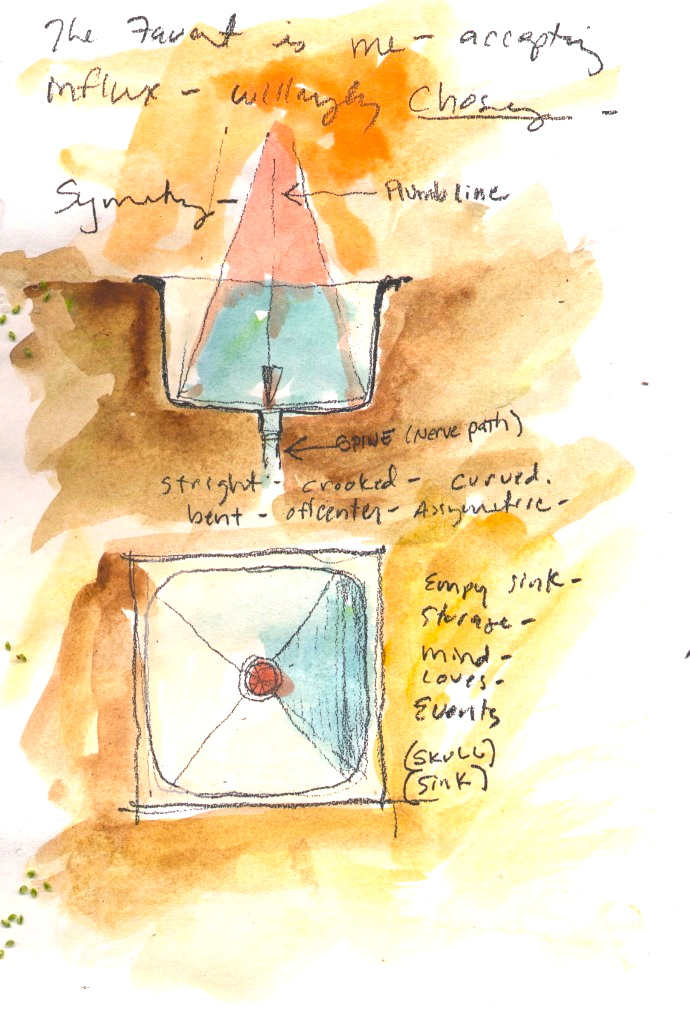 The Favant is me - accepting
influx - willingly Chosen -
Symetry -
Plumb line
SPINE (Nerve path)
stright - crooked - curved.
bent - offcenter - Assymetric -
Empy sink -
Storage -
Mind -
Loves -
Events
(SKULL)
(Sink)